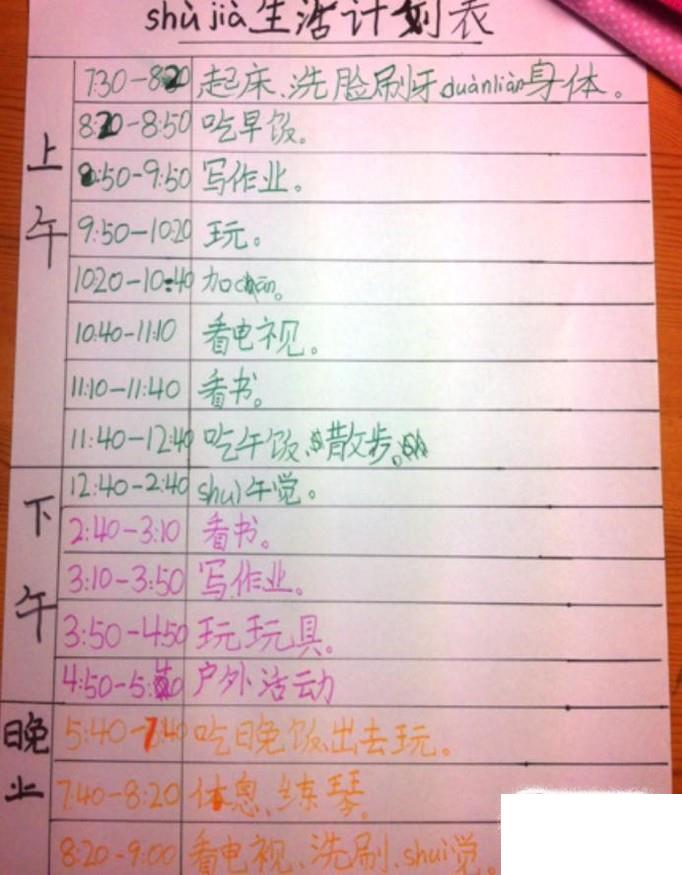 shǔ jià 生活计划表
上午
7:30-8:20 起床、洗脸刷牙duànliàn身体。
8:20-8:50 吃早饭。
8:50-9:50 写作业。
9:50-10:20 玩。
10:20-10:40 加cān。
10:40-11:10 看电视。
11:10-11:40 看书。
11:40-12:40 吃午饭、散步。
下午
12:40-2:40 shuì午觉。
2:40-3:10 看书。
3:10-3:50 写作业。
3:50-4:50 玩玩具。
4:50-5:40 户外活动
晚上
5:40-7:40 吃晚饭、出去玩。
7:40-8:20 休息、练琴。
8:20-9:00 看电视、洗刷、shuì觉。